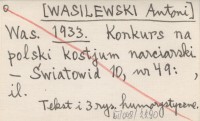 [WASILEWSKI Antoni]
Was. 1933. Konkurs na
polski kostjum narciarski
– Światowid 10, nr 49: ,
il.
Tekst i 3 rys. humorystyczne.